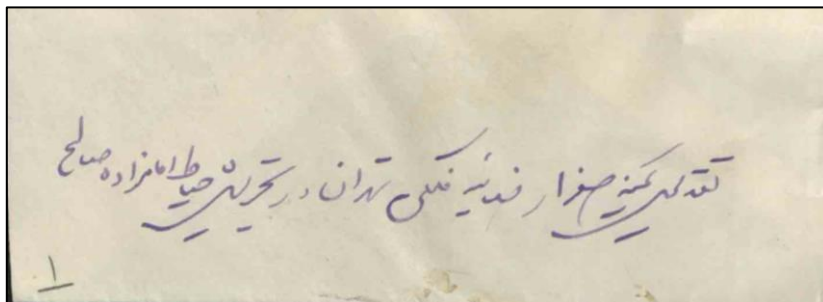 تقدیمی کمینه صغرا فدائیه فلکی تهران در تجریش حیاط امامزاده صالح
۱